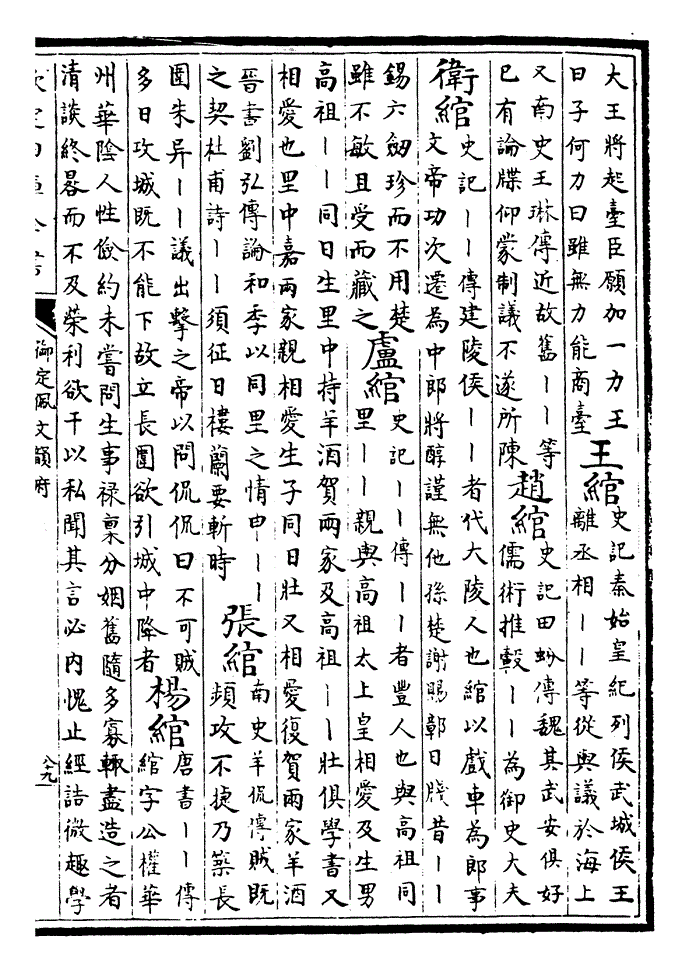 大王將起臺臣願加一力王
曰子何力曰雖無力能商臺
王綰
史記秦始皇紀列侯武城侯王
離丞相丨丨等從與議於海上
又南史王琳傳近故舊丨丨等
已有論牒仰蒙制議不遂所陳
趙綰
史記田蚡傳魏其武安俱好
儒術推轂丨丨為御史大夫
衛綰
史記丨丨傳建陵侯丨丨者代大陵人也綰以戲車為郎事
文帝功次遷為中郎將醇謹無他孫楚謝賜鄣日牋昔丨丨
錫六劒珍而不用楚
雖不敏且受而藏之
盧綰
史記丨丨傳丨丨者豐人也與高祖同
里丨丨親與高祖太上皇相愛及生男
高祖丨丨同日生里中持羊酒賀兩家及高祖丨丨壯俱學書又
相愛也里中嘉兩家親相愛生子同日壯又相愛復賀兩家羊酒
晉書劉弘傳論和季以同里之情申丨丨
之契杜甫詩丨丨須征日樓蘭要斬時
張綰
南史羊侃傳賊既
頻攻不捷乃築長
圍朱异丨丨議出擊之帝以問侃侃曰不可賊
多日攻城既不能下故立長圍欲引城中降者
楊綰
唐書丨丨傳
綰字公權華
州華陰人性儉約未嘗問生事祿稟分姻舊隨多寡輒盡造之者
清談終晷而不及榮利欲干以私聞其言必内愧止經誥微趣學
欽定四庫全書
御定佩文韻府
八十九